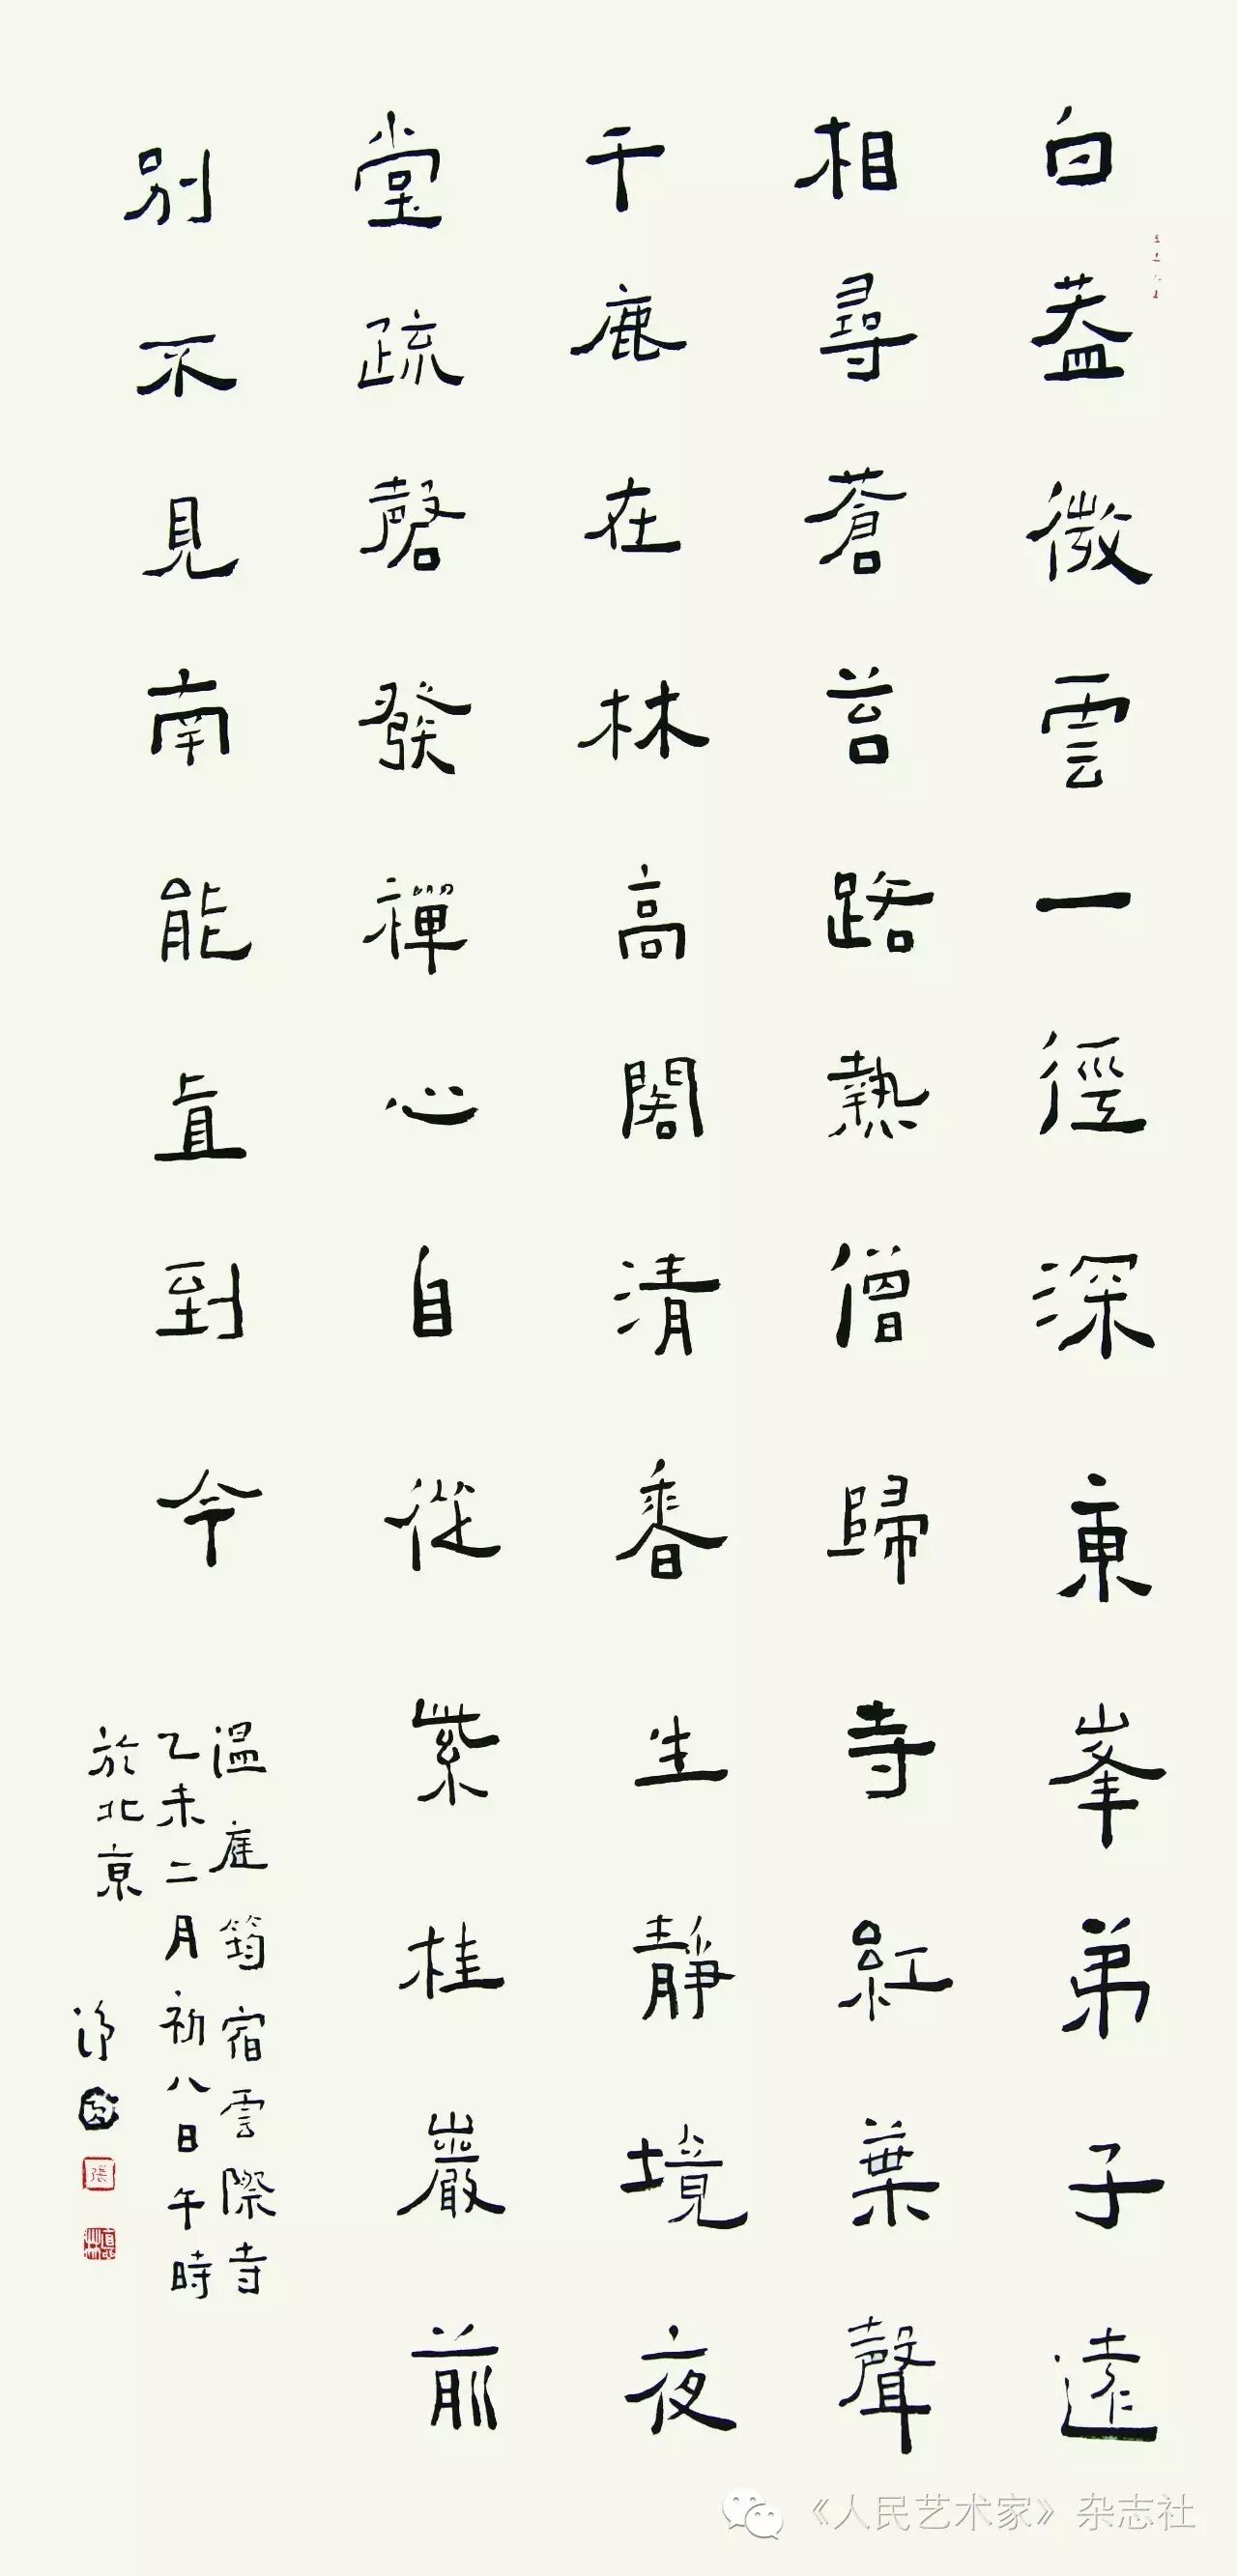 白蓋微雲一徑深東峯弟子遠
相尋蒼苔路熟僧歸寺紅葉聲
干鹿在林高閣清香生靜境夜
堂疏磬發禪心自從紫桂巖前
別不見南能直到今
温庭筠宿雲際寺
乙未二月初八日午時
於北京
張
《人民艺术家》杂志社